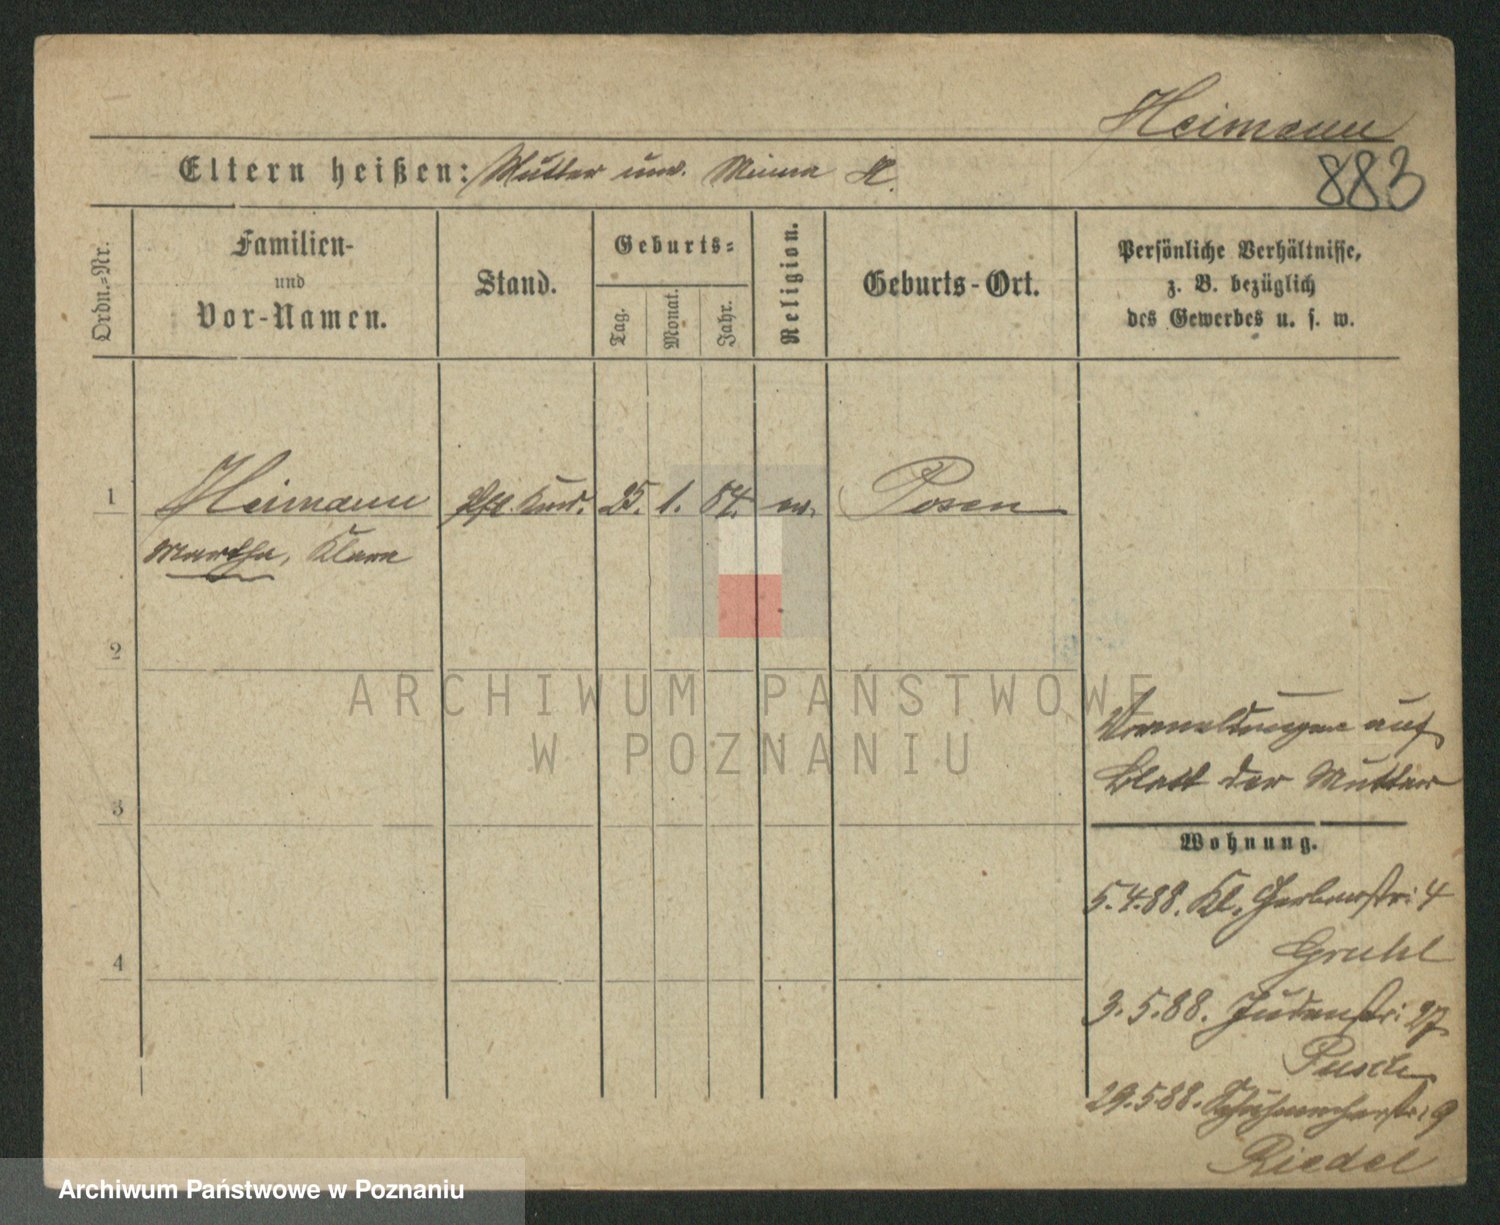 Heimann
883
Eltern heißen: Mutter unv. Minna H.
Ordn.-Nr.
Familien-
und
Vor-Namen.
Stand.
Geburts-
Tag.
Monat.
Jahr.
Religion.
Geburts-Ort.
Persönliche Verhältnisse,
z. B. bezüglich
des Gewerbes u. s. w.
1
Heimann
Kind. 25. 1. 84. ev.
Posen
Martha, Klara
2
ARCHIWUM PAŃSTWOWE
W POZNANIU
Vermeldungen auf
Blatt der Mutter
3
Wohnung.
5.4.88. Kl. Gerberstr: 4
Gruhl
4
3.5.88. Judenstr: 27
Pusch
29.5.88. Schuhmacherstr: 9
Riedel
Archiwum Państwowe w Poznaniu